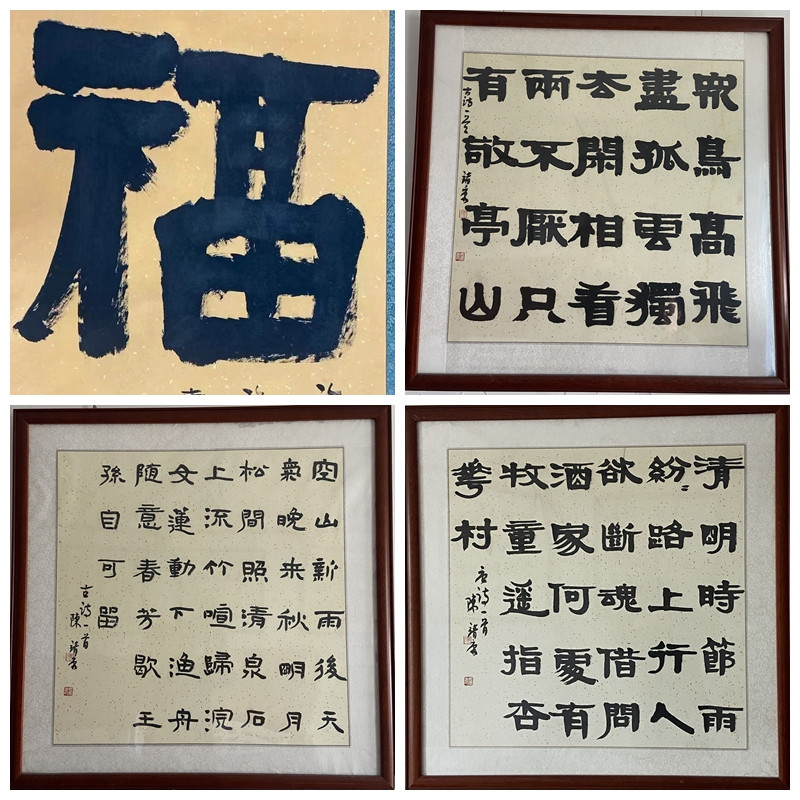 福
眾鳥高飛
盡孤雲獨
去閑相看
兩不厭只
有敬亭山
古诗一首
空山新雨後天
氣晚来秋明月
松間照清泉石
上流竹喧歸浣
女蓮動下渔舟
随意春芳歇王
孫自可留
古诗一首
陳
清明時節雨
紛〻路上行人
欲斷魂借問
酒家何處有
牧童遥指杏
華村
唐诗一首
陳